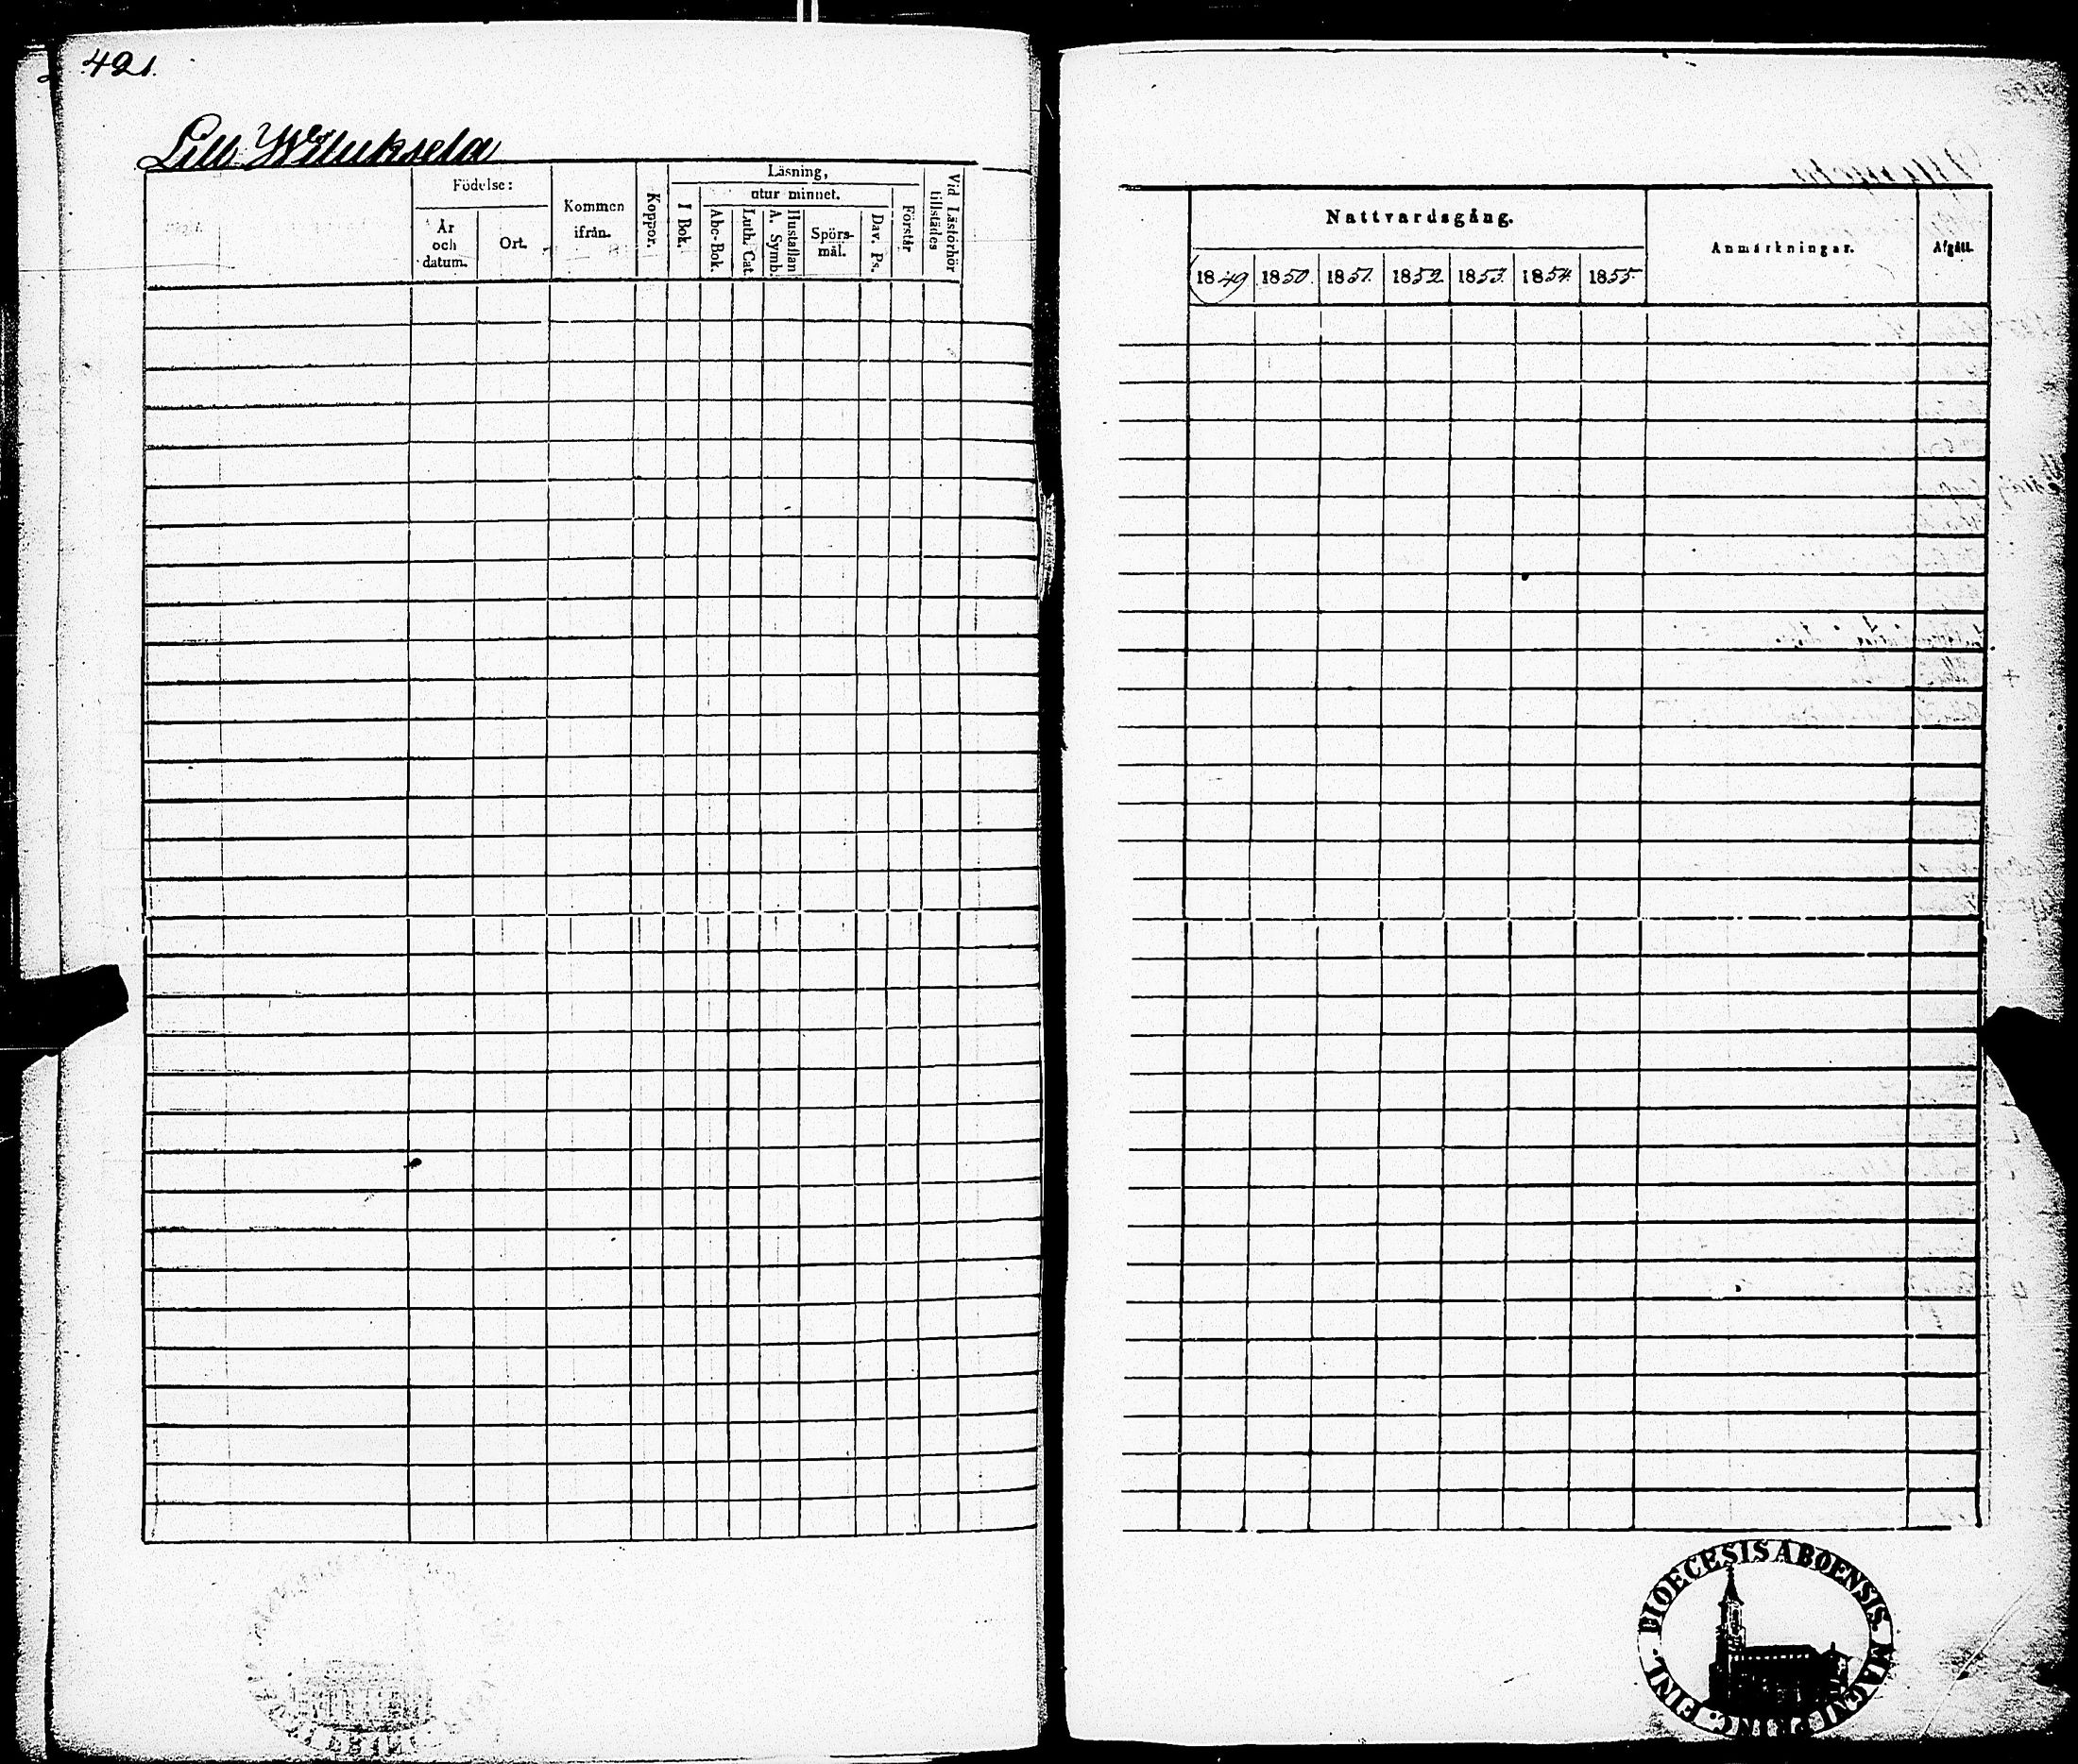 421.
Lill Wiluksela
Födelse:
År och datum.
Ort.
Kommen ifrån.
Koppor.
Läsning,
I Bok.
utur minnet.
Abc-Bok.
Luth. Cat.
A. Symb.
Hustaflan
Spörsmål.
Dav. Ps.
Förstår
Vid Läsförhör tillstädes
Nattvardsgång.
1849 1850. 1851. 1852. 1853. 1854. 1855.
Anmärkningar.
Afgått.
DIOECESIS ABOENSIS. MAGNI PRINC. FINL.